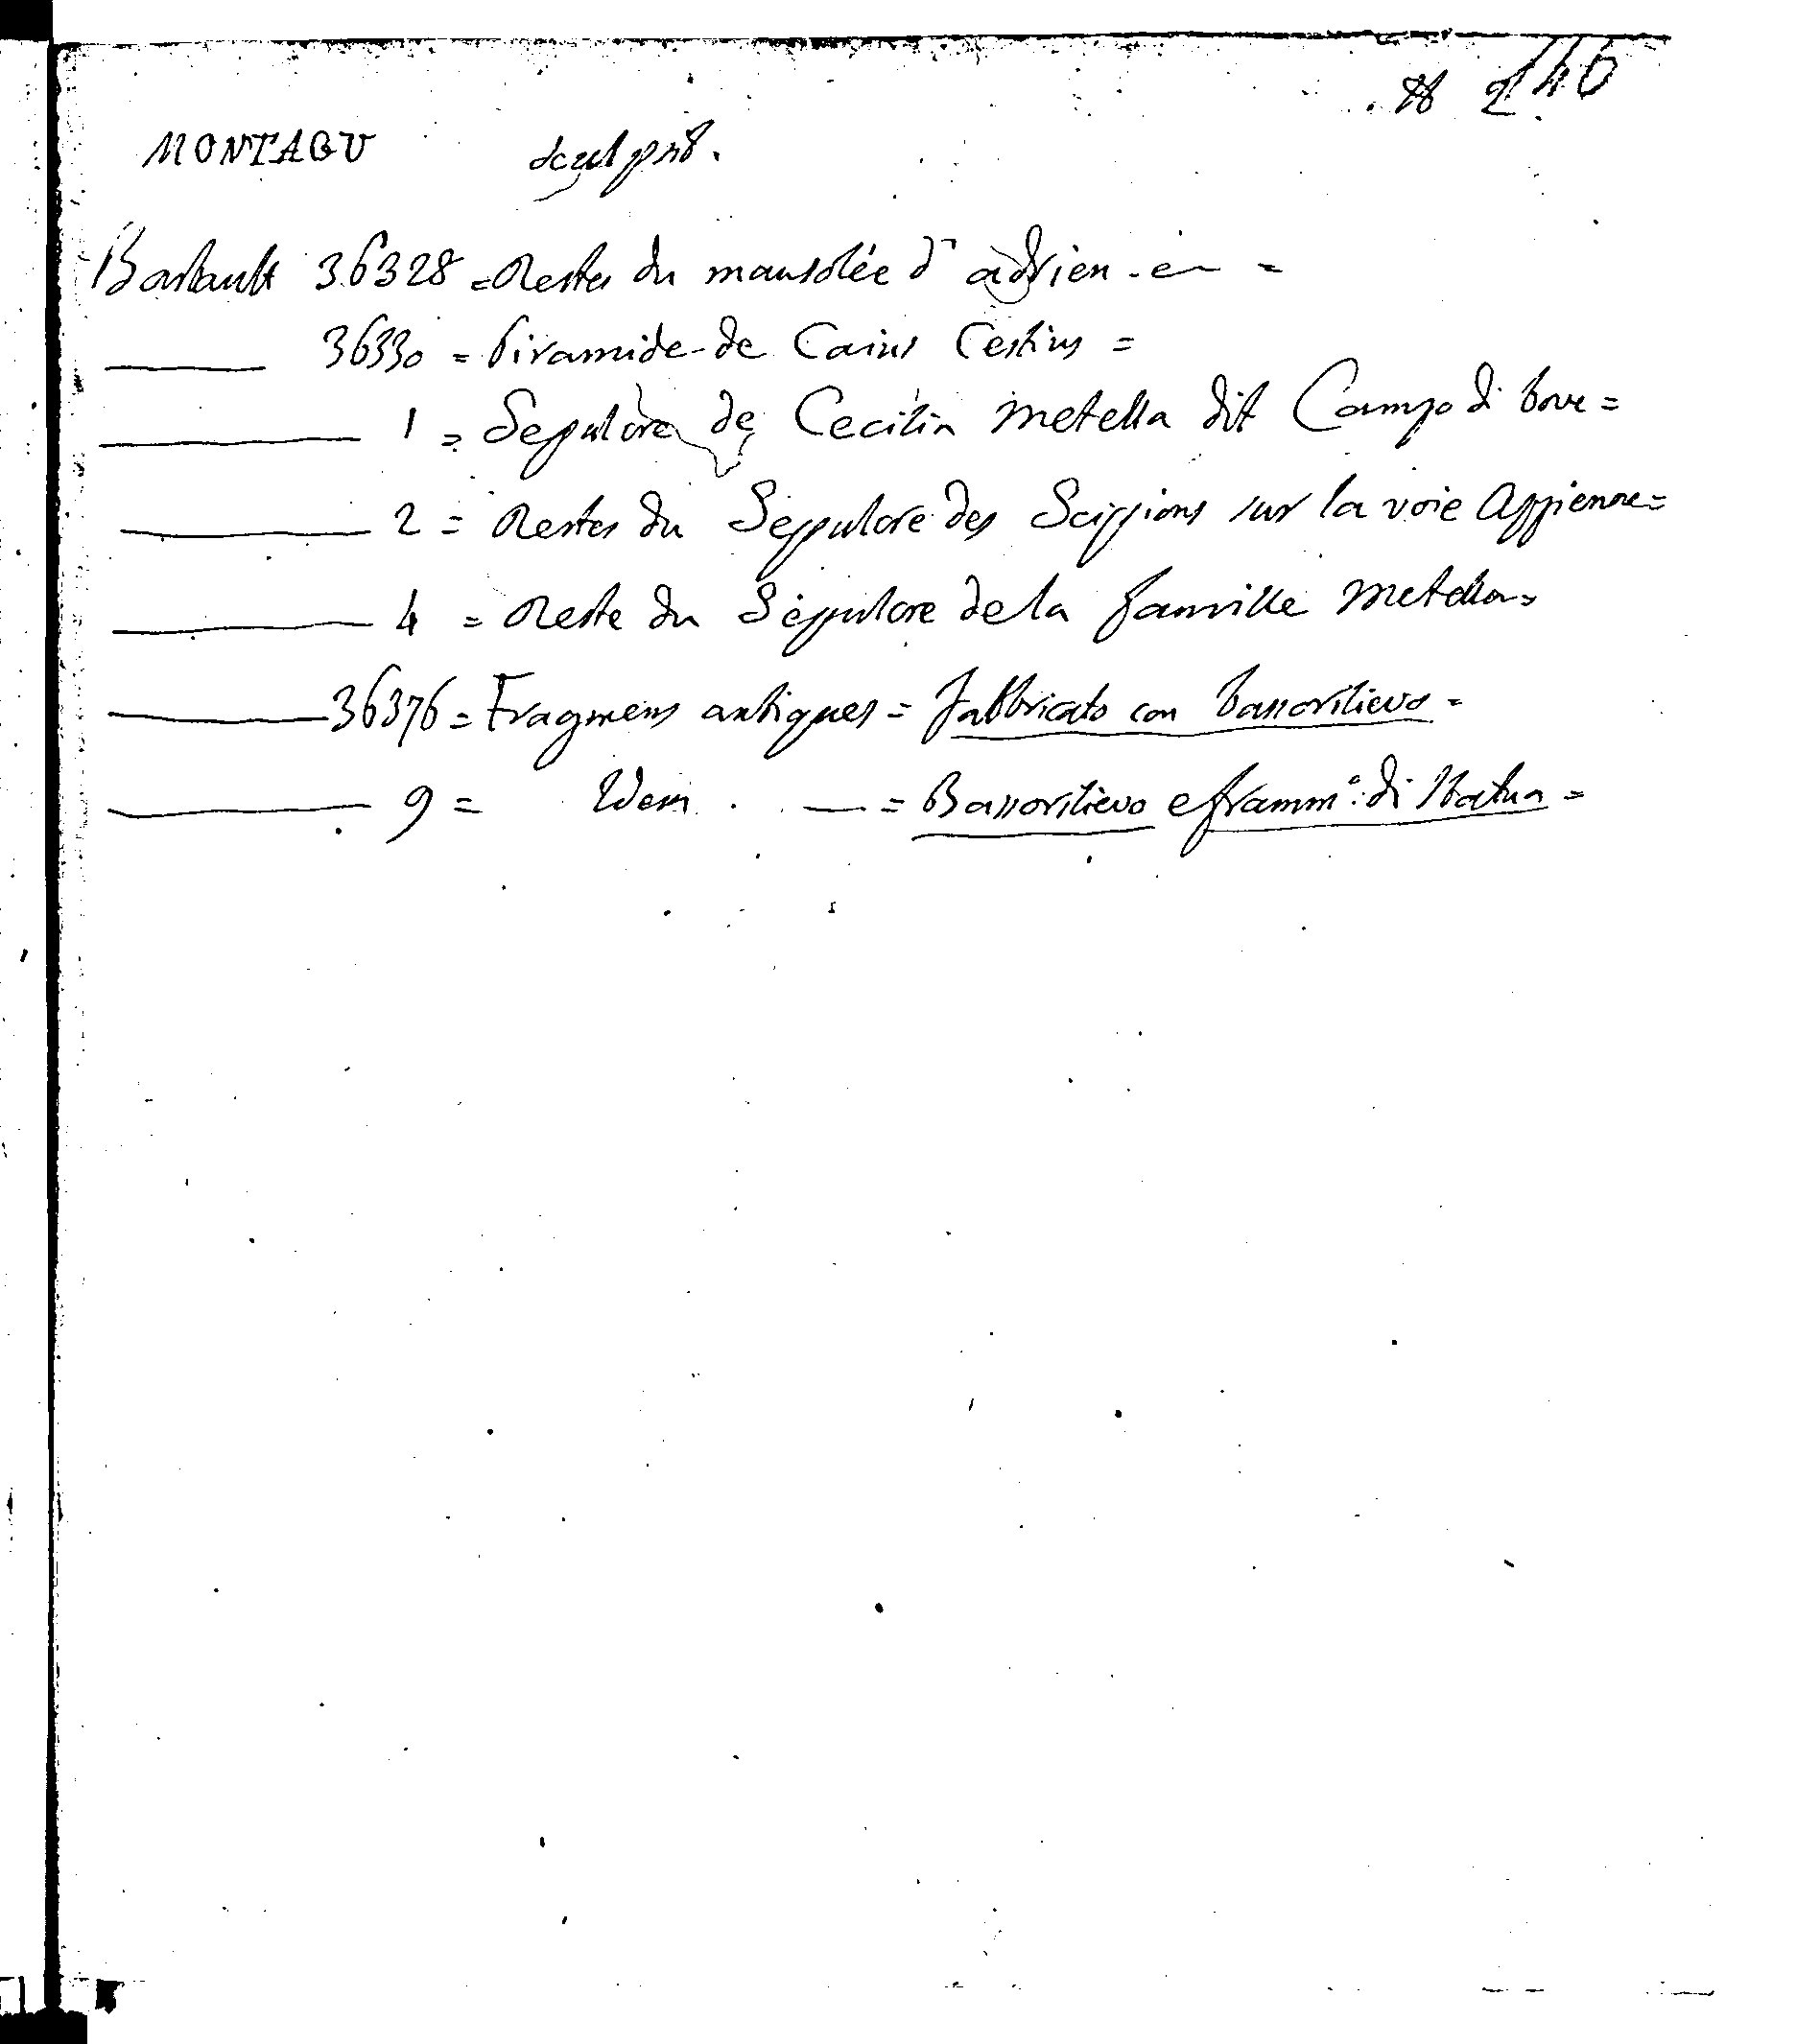 246
MONTAGU sculpsit.
Barbault 36328 = Restes du mausolée d'adrien - en — =
——— 36330 = Piramide de Caius Cestius =
——— 1 = Sepulcre de Cecilia Metella dit Campo di bove =
——— 2 = Restes du Seppulcre des Scippions sur la voie Appienne =
——— 4 = Reste du Séppulcre de la famille Metella =
——— 36376 = Fragmens antiques = fabbricato con bassorilievo =
——— 9 = Idem . — = Bassorilievo e framm.º di Statua =